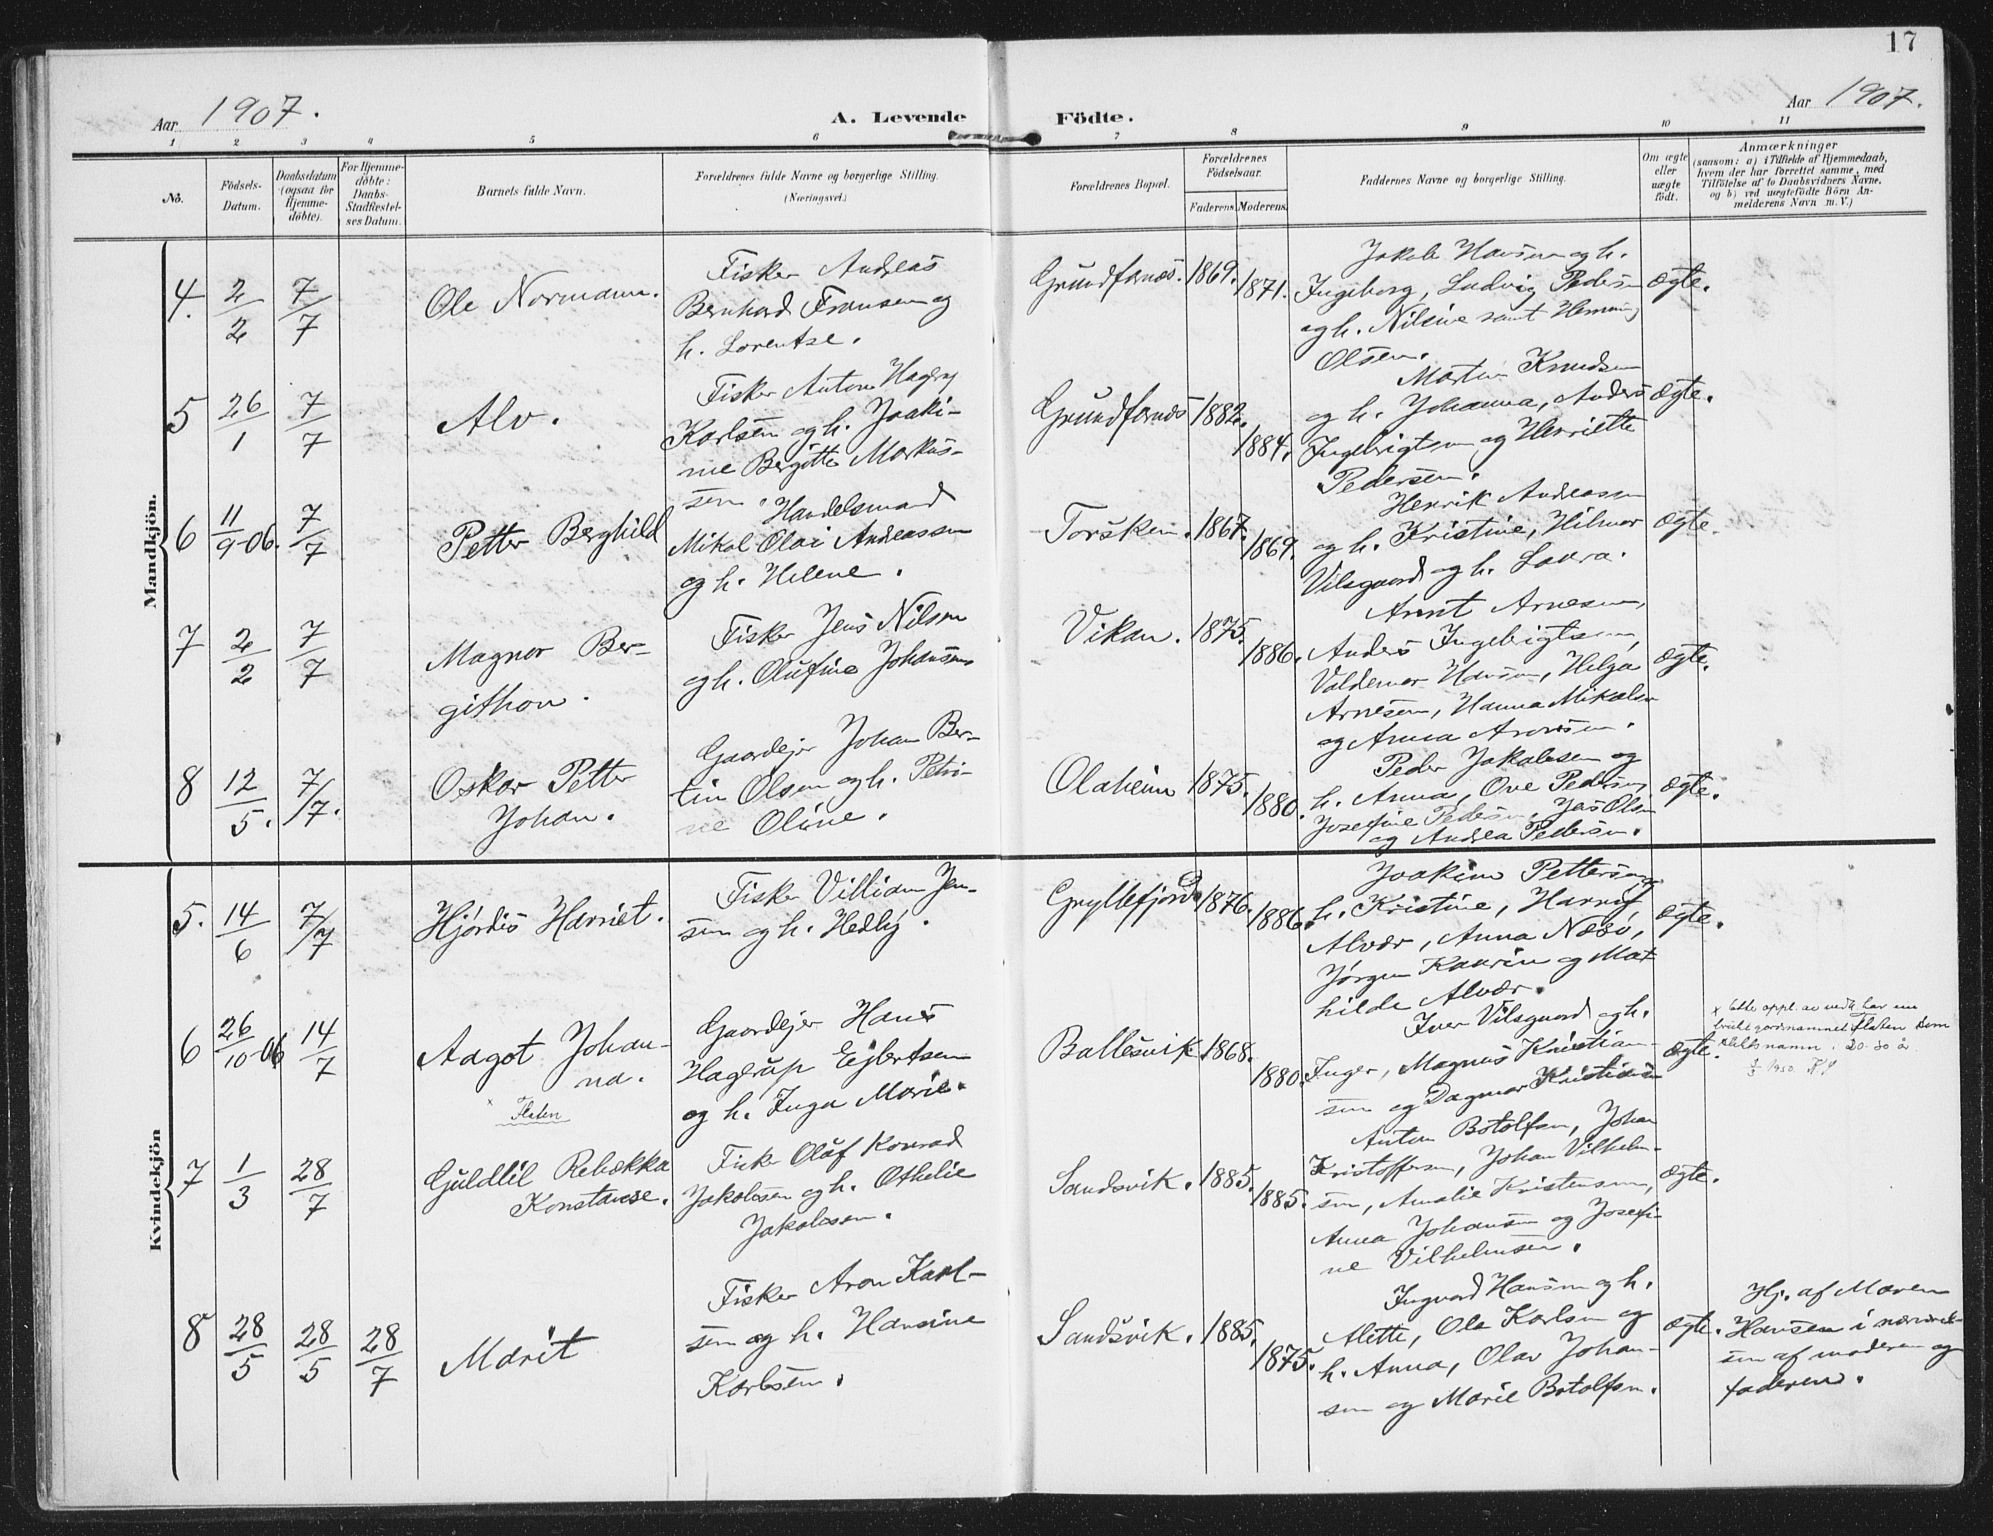 17
Aar 1907. A. Levende Födte. Aar 1907.
1 2 3 4 5 6 7 8 9 10 11
No.
Födsels-
Datum.
Daabsdatum
(ogsaa for
Hjemme-
döbte).
For Hjemme-
döbte:
Daabs-
Stadfæstel-
ses Datum.
Barnets fulde Navn.
Forældrenes fulde Navne og borgerlige Stilling.
(Næringsvei.)
Forældrenes Bopæl.
Forældrenes
Födselsaar.
Faderens. Moderens.
Faddernes Navne og borgerlige Stilling.
Om ægte
eller
uægte
födt.
Anmærkninger
(saasom: a) i Tilfælde af Hjemmedaab,
hvem der har forrettet samme, med
Tilföielse af to Daabsvidners Navne,
og b) ved uægtefödte Börn An-
melderens Navn m. V.)
Mandkjön.
4. 2/2 7/7 Ole Normann.
Fisker Andreas
Bernhard Fransen og
h. Lorentse.
Grundfarnes. 1869. 1871.
Jakob Hansen og h.
Ingeborg, Ludvig Pedersen
og h. Nilsine samt Heming
Olsen.
ægte.
5 26/1 7/7 Alv.
Fisker Anton Hagbny
Karlsen og h. Joaki-
ne Bergitte Markus-
sen.
Grundfarnes 1882. 1884.
Martin Knudsen
og h. Johanna, Anders
Ingebrigtsen og Henriette
Pedersen.
ægte.
6 11/9-06. 7/7 Petter Berghild
Handelsmand
Mikal Olai Andreassen
og h. Helene.
Torsken. 1867. 1869.
Henrik Andreassen
og h. Kristine, Hilmar
Vilsgaard og h. Laura.
ægte.
7 2/2 7/7 Magnor Ber-
githon.
Fisker Jens Nilsen
og h. Olufine Johansen
Vikan. 1875. 1886.
Arnt Arnesen,
Anders Ingebrigtsen,
Valdemar Hansen, Helga
Arnesen, Hanna Mikalsen
og Anna Aronsen.
ægte.
8 12/5. 7/7. Oskar Petter
Johan.
Gaardejer Johan Ber-
tin Olsen og h. Petri-
ne Oline.
Olaheim 1875. 1880.
Peder Jakobsen og
h. Anna, Ove Pedersen
Josefine Pedersen, Jas Olsen
og Andrea Pedersen.
ægte.
Kvindekjön
5. 14/6 7/7 Hjørdis Harriet.
Fisker Villiam Jen-
sen og h. Hedlig.
Gryllefjord 1876. 1886.
Joakim Pettersen og
h. Kristine, Harry
Alvær, Anna Næsö,
Jørgen Kaurin og Mat
hilde Alvær.
ægte.
6 26/10-06 14/7 Aagot Johan-
na.
x Flaten
Gaardejer Hans
Hagerup Ejlertsen
og h. Inga Marie.
Ballesvik 1868. 1880.
Iver Vilsgaard og h.
Inger, Magnus Kristian-
sen og Dagmar Kristiansen
ægte.
x Etter oppl. av vedk. har hun
brukt gardnamnet Flaten som
slektsnamn. 20-30 år.
1950
7 1/3 28/7 Guldlil Rebækka
Konstanse.
Fisker Olaf Konrad
Jakobsen og h. Othelie
Jakobsen.
Sandsvik. 1885. 1885.
Anton Botolfsen, Johan
Kristoffersen, Johan Vilhelm-
sen, Amalie Kristensen,
Anna Johansen og Josefi-
ne Vilhelmsen.
ægte.
8 28/5 28/5 28/7 Marit
Fisker Aron Karl-
sen og h. Hansine
Karlsen.
Sandsvik. 1885. 1875.
Ingvard Hansen og h.
Alette, Ole Karlsen og
h. Anna, Olav Johan-
sen og Marie Botolfsen.
ægte.
Hj. af Maren
Hansen i nærværel-
sen af moderen og
faderen.